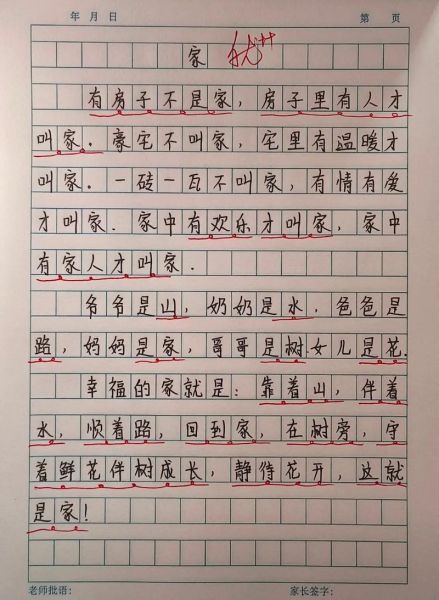 年 月 日 第 页
家 优++
有房子不是家，房子里有人才
叫家．豪宅不叫家，宅里有温暖才
叫家．一砖一瓦不叫家，有情有爱
才叫家．家中有欢乐才叫家，家中
有家人才叫家．
爷爷是山，奶奶是水，爸爸是
路，妈妈是家，哥哥是树．女儿是花．
幸福的家就是：靠着山，伴着
水，顺着路，回到家，在树旁，守
着鲜花伴树成长，静待花开，这就
是家！
老师批语： 家长签字：